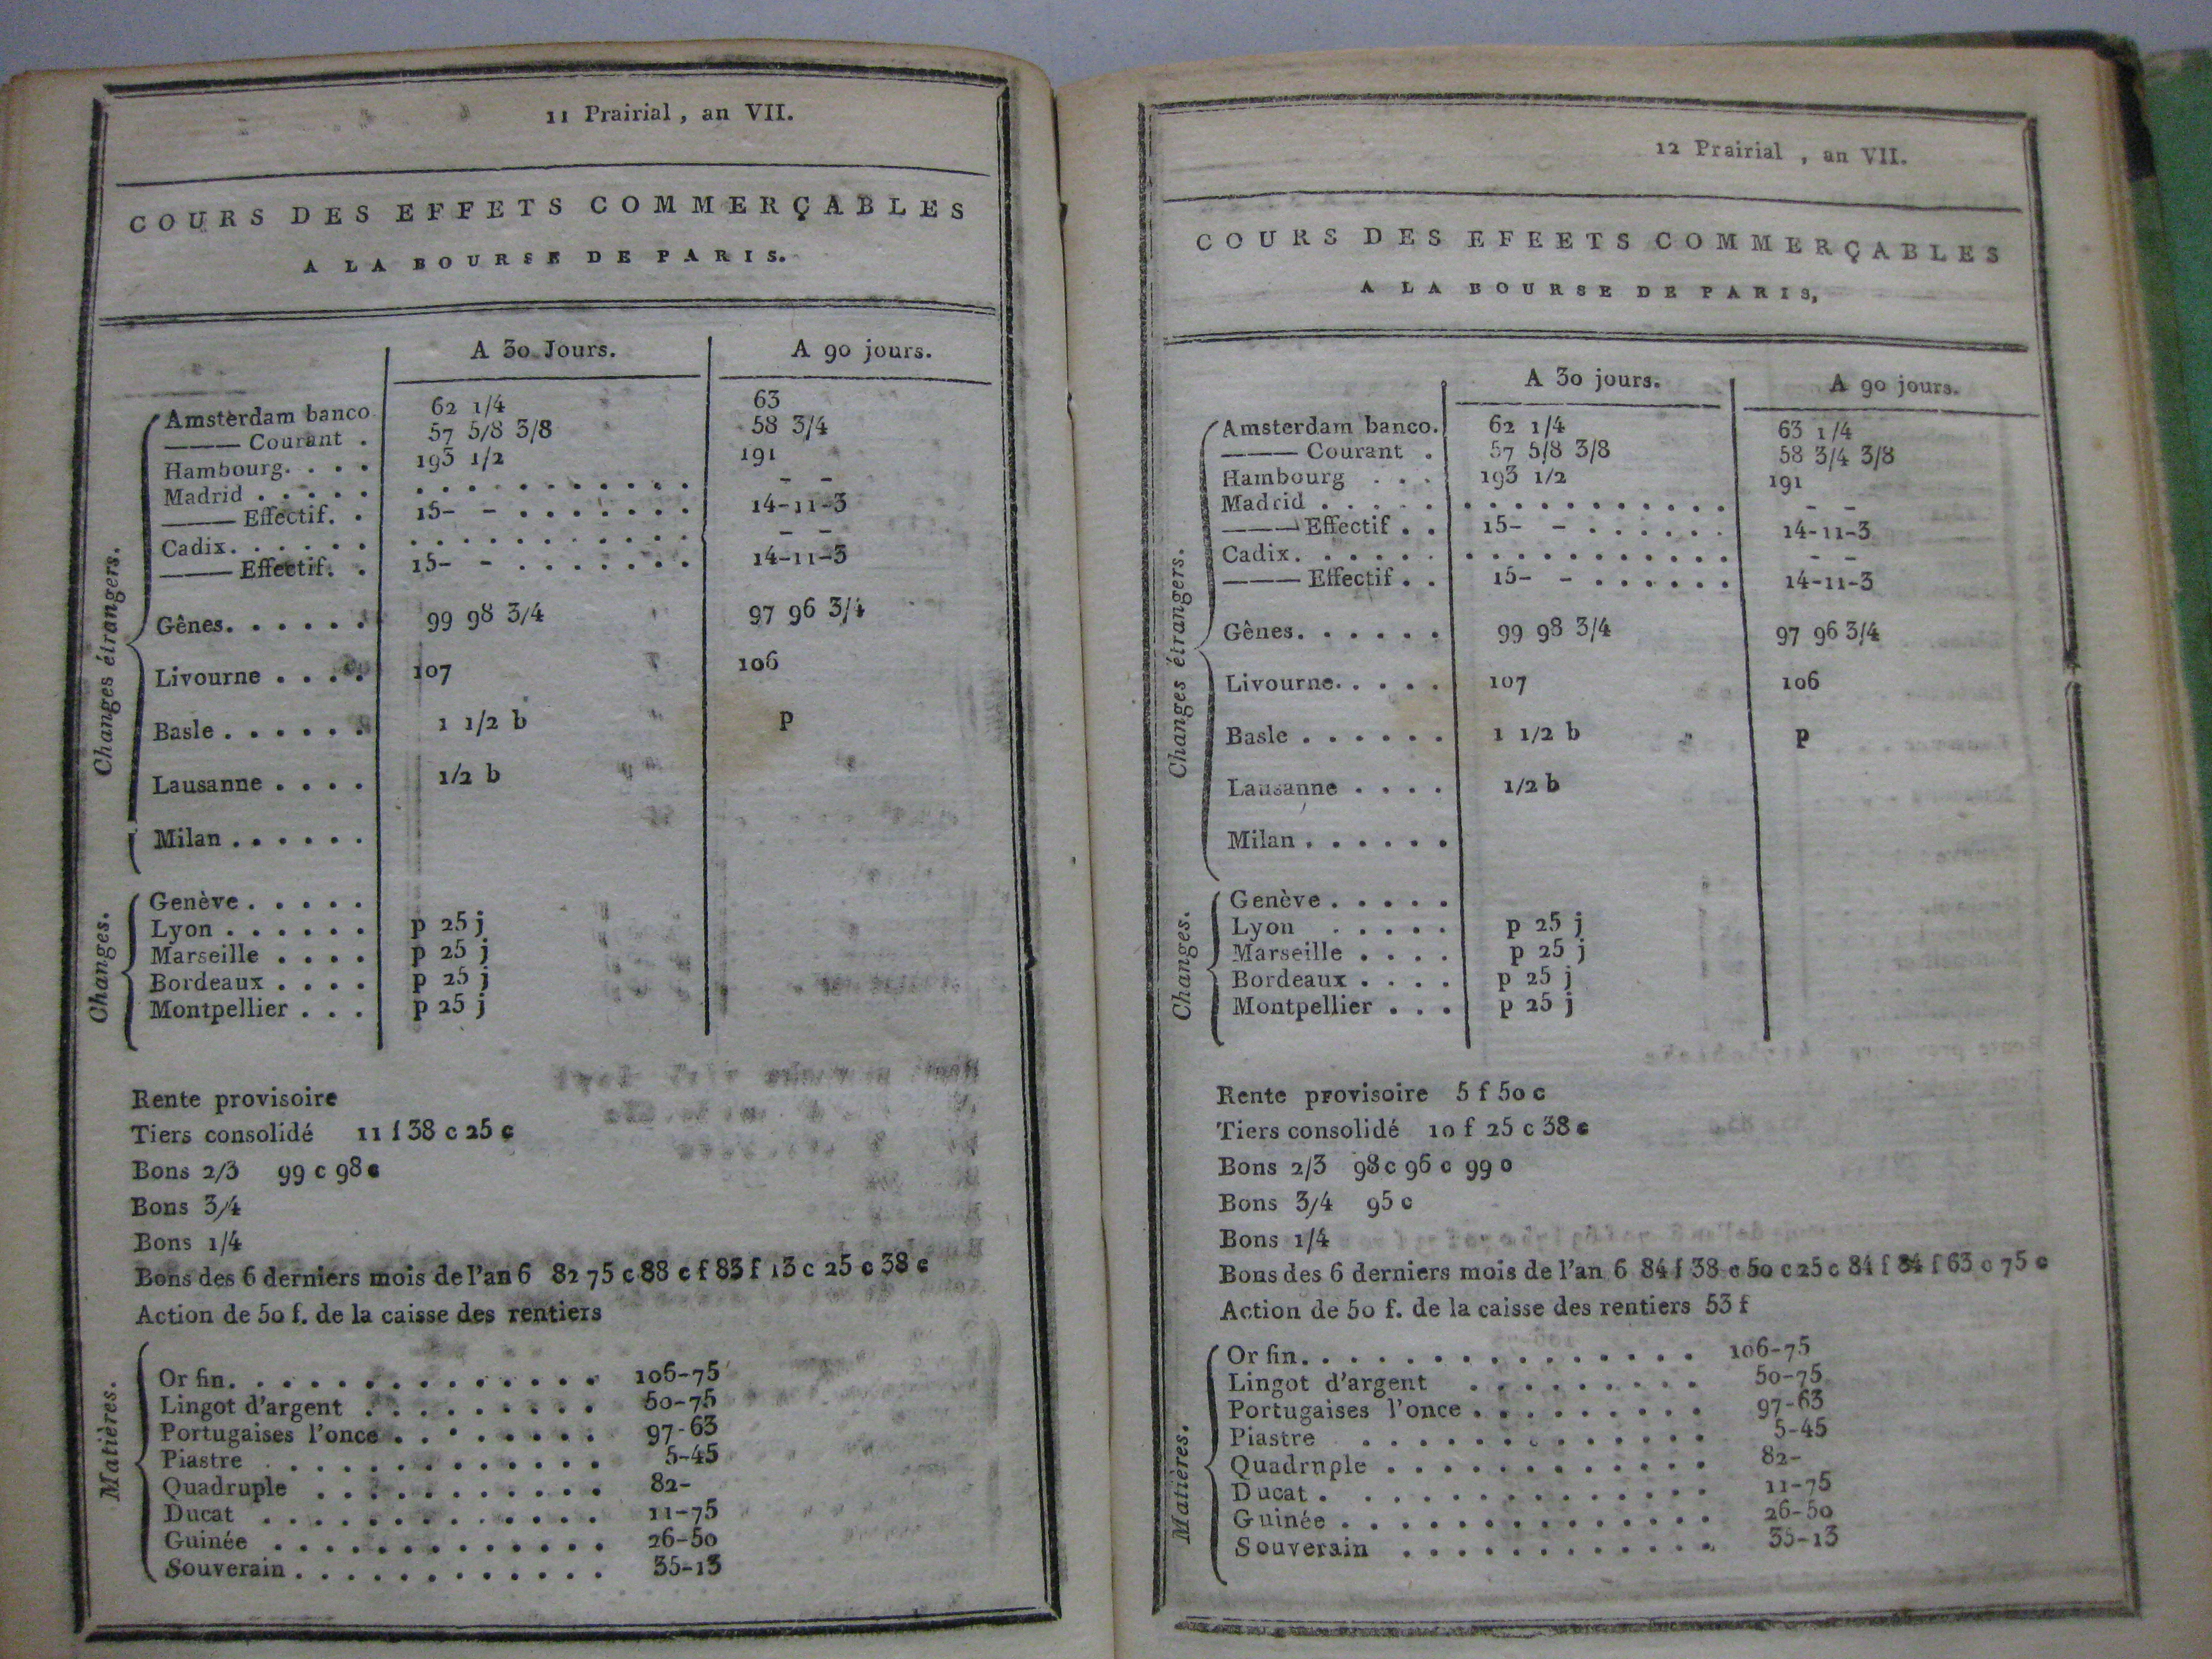 11 Prairial , an VII.
COURS DES EFFETS COMMERÇABLES
A LA BOURSE DE PARIS.
A 30 Jours. A 90 jours.
Changes étrangers.
Amsterdam banco 62 1/4 63
——— Courant . 57 5/8 3/8 58 3/4
Hambourg. . . . 193 1/2 191
Madrid . . . . . . . . . . . . . . . . - -
——— Effectif. . 15- - . . . . . . . 14-11-3
Cadix. . . . . . . . . . . . . . . . . - -
——— Effectif. . 15- - . . . . . . . 14-11-3
Gênes. . . . . . 99 98 3/4 97 96 3/4
Livourne . . . . 107 106
Basle . . . . . . 1 1/2 b p
Lausanne . . . . 1/2 b
Milan . . . . . .
Changes.
Genève . . . . .
Lyon . . . . . . p 25 j
Marseille . . . . p 25 j
Bordeaux . . . . p 25 j
Montpellier . . . p 25 j
Rente provisoire
Tiers consolidé 11 f 38 c 25 c
Bons 2/3 99 c 98 c
Bons 3/4
Bons 1/4
Bons des 6 derniers mois de l'an 6 82 75 c 88 c f 83 f 13 c 25 c 38 c
Action de 50 f. de la caisse des rentiers
Matières.
Or fin. . . . . . . . . . . . . . . 106-75
Lingot d'argent . . . . . . . . . 50-75
Portugaises l'once . . . . . . . . 97-63
Piastre . . . . . . . . . . . . . 5-45
Quadruple . . . . . . . . . . . 82-
Ducat . . . . . . . . . . . . . 11-75
Guinée . . . . . . . . . . . . . 26-50
Souverain . . . . . . . . . . . . 35-13
12 Prairial , an VII.
COURS DES EFEETS COMMERÇABLES
A LA BOURSE DE PARIS,
A 30 jours. A 90 jours.
Changes étrangers.
Amsterdam banco. 62 1/4 63 1/4
——— Courant . 57 5/8 3/8 58 3/4 3/8
Hambourg . . . 193 1/2 191
Madrid . . . . . . . . . . . . . . . . - -
——— Effectif . . 15- - . . . . . . 14-11-3
Cadix. . . . . . . . . . . . . . . . . - -
——— Effectif . . 15- - . . . . . . 14-11-3
Gênes. . . . . . 99 98 3/4 97 96 3/4
Livourne. . . . . 107 106
Basle . . . . . . 1 1/2 b p
Lausanne . . . . 1/2 b
Milan . . . . . .
Changes.
Genève . . . . .
Lyon . . . . . p 25 j
Marseille . . . . p 25 j
Bordeaux . . . . p 25 j
Montpellier . . . p 25 j
Rente provisoire 5 f 50 c
Tiers consolidé 10 f 25 c 38 c
Bons 2/3 98 c 96 c 99 o
Bons 3/4 95 c
Bons 1/4
Bons des 6 derniers mois de l'an 6 84 f 38 c 50 c 25 c 84 f 84 f 63 c 75 c
Action de 50 f. de la caisse des rentiers 53 f
Matières.
Or fin. . . . . . . . . . . . . . . . 106-75
Lingot d'argent . . . . . . . . . 50-75
Portugaises l'once . . . . . . . . . 97-63
Piastre . . . . . . . . . . . . . 5-45
Quadrnple . . . . . . . . . . . . 82-
Ducat . . . . . . . . . . . . . . 11-75
Guinée . . . . . . . . . . . . . . 26-50
Souverain . . . . . . . . . . . . 35-13